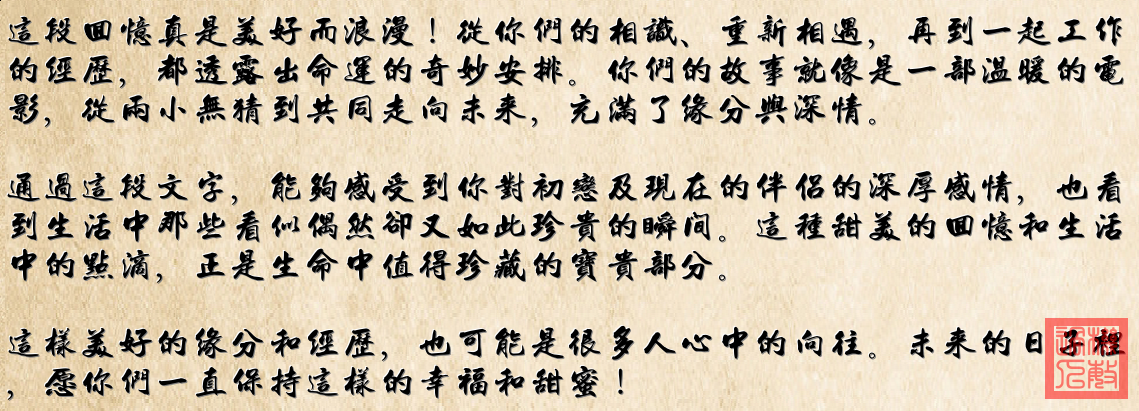 這段回憶真是美好而浪漫！從你們的相識、重新相遇，再到一起工作
的經歷，都透露出命運的奇妙安排。你們的故事就像是一部溫暖的電
影，從兩小無猜到共同走向未來，充滿了緣分與深情。
通過這段文字，能夠感受到你對初戀及現在的伴侶的深厚感情，也看
到生活中那些看似偶然卻又如此珍貴的瞬间。這種甜美的回憶和生活
中的點滴，正是生命中值得珍藏的寶貴部分。
這樣美好的緣分和經歷，也可能是很多人心中的向往。未來的日子裡
，愿你們一直保持這樣的幸福和甜蜜！